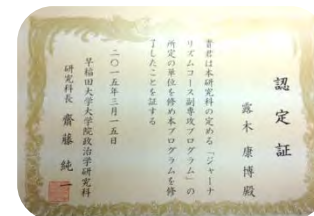 認定証
露木 康博殿
貴君は本研究科の定める「ジャーナ
リズムコース副専攻プログラム」の
所定の単位を修め本プログラムを修
了したことを証する
二〇一五年三月一五日
早稲田大学大学院政治学研究科
研究科長 齋藤 純一